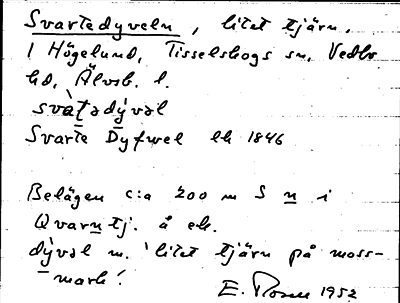 Svartedyveln, litet tjärn,
i Högelund, Tisselskogs sn, Vedbo
hd, Älvsb. l.
svàt̠ədý̠vəl
Svarte Dyfwel lk 1846
Belägen c:a 200 m S n i
Qvarntj. å ek.
dy̠vəl m. 'litet tjärn på moss-
mark'.
E. Rosen 1952